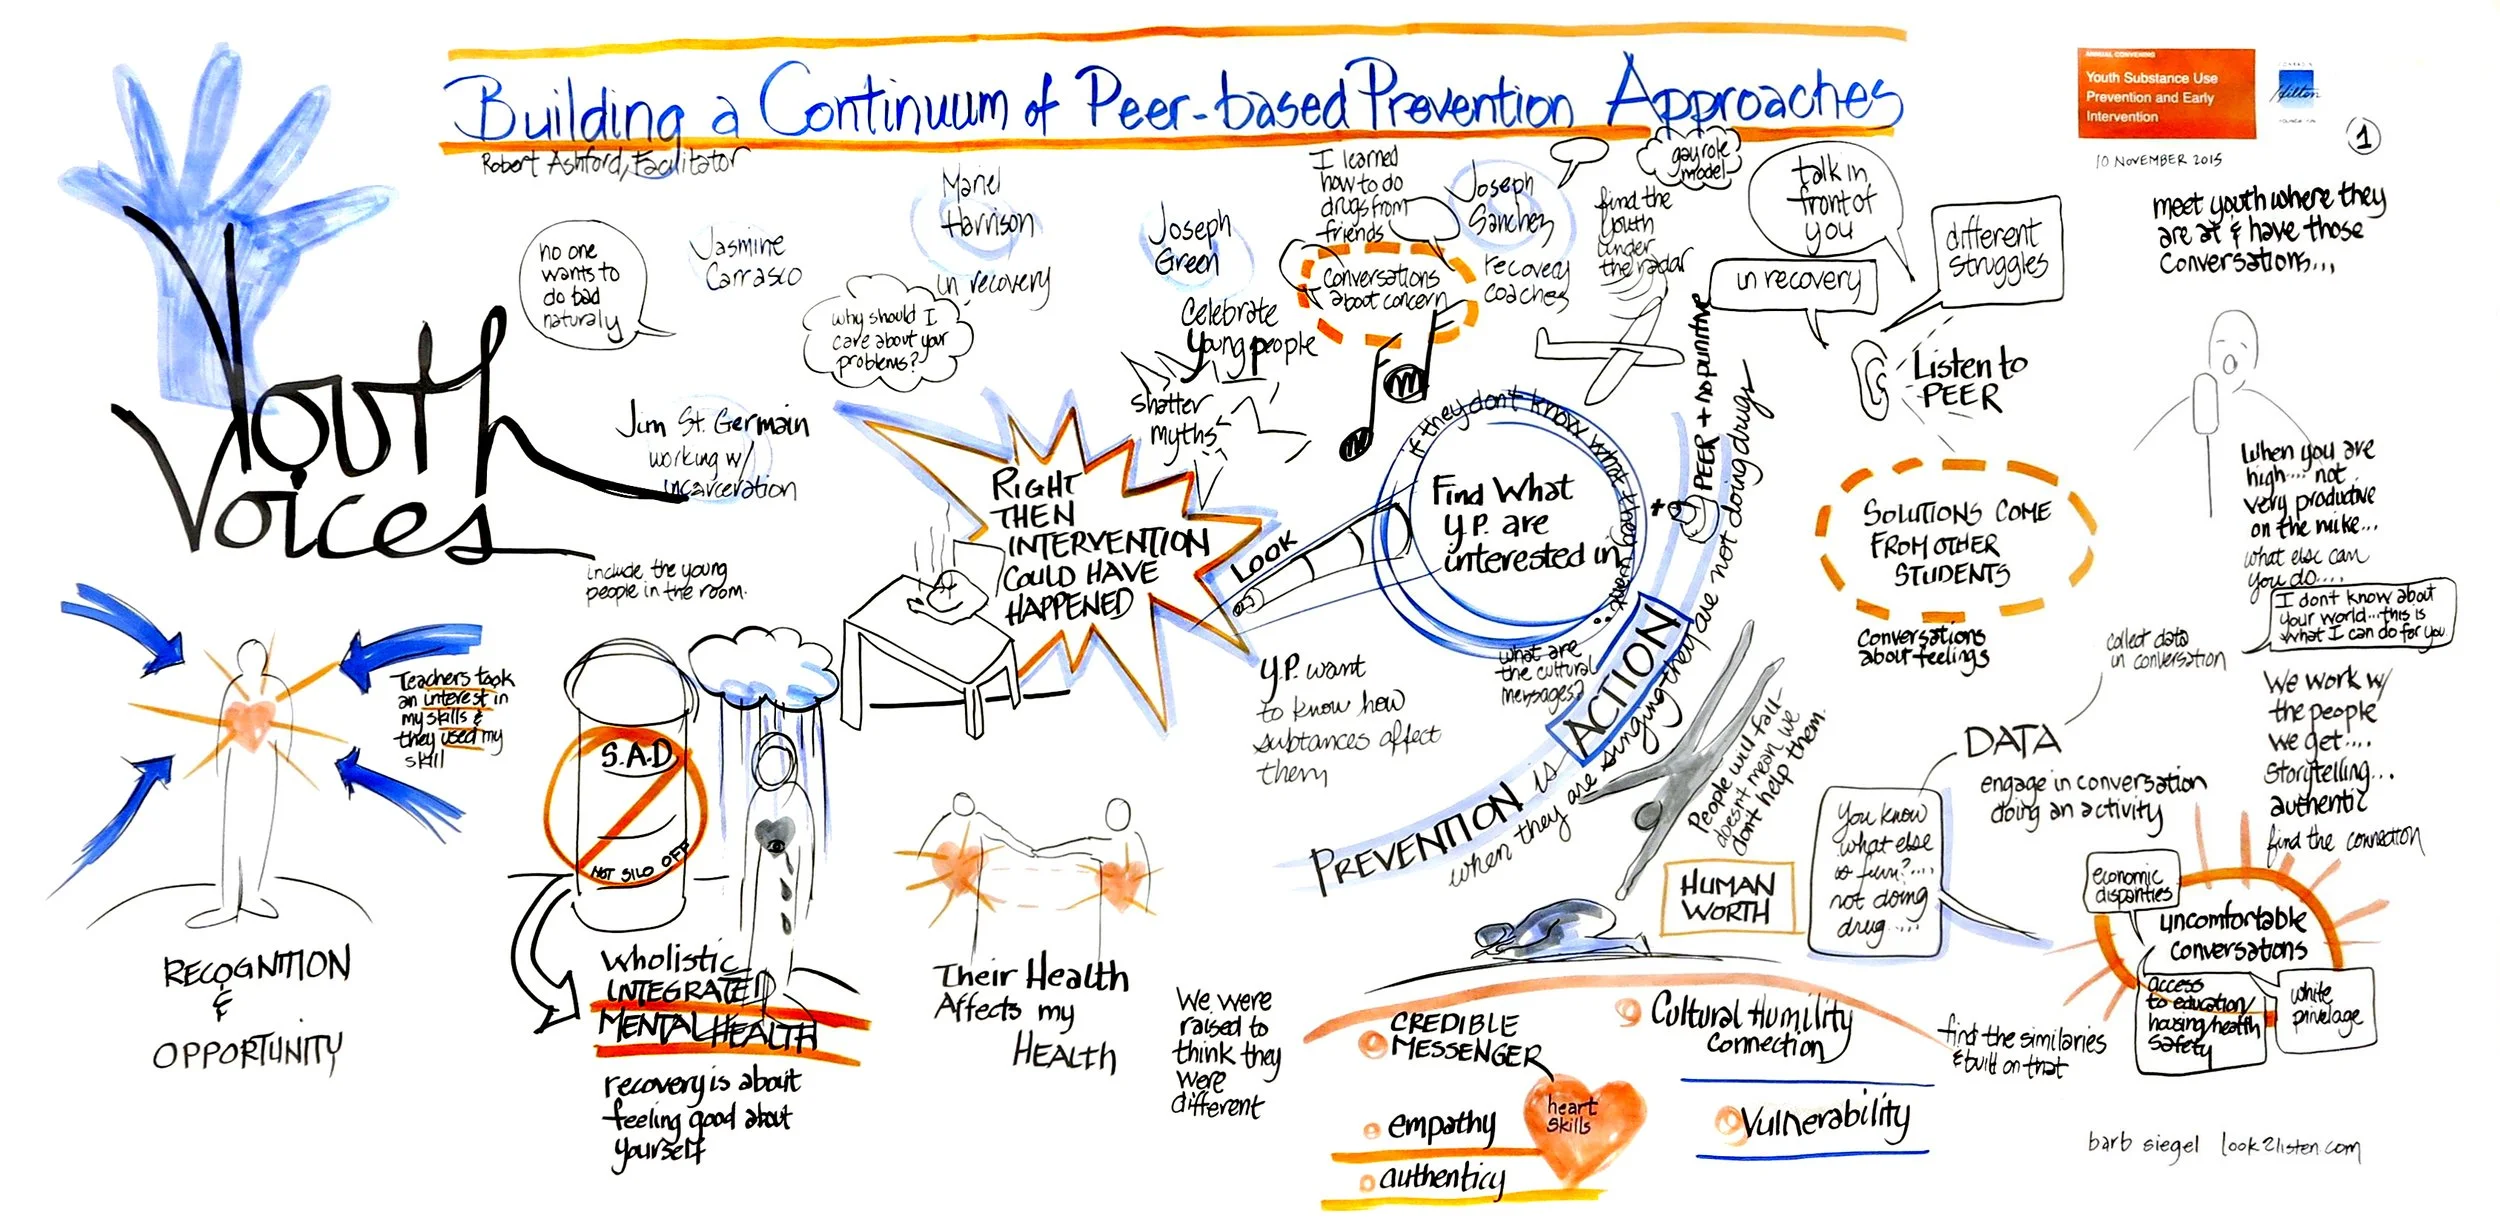 Building a Continuum of Peer-based Prevention Approaches
Robert Ashford, Facilitator
ANNUAL CONVENING
Youth Substance Use
Prevention and Early
Intervention
CONRAD N.
Hilton
FOUNDATION
1
10 NOVEMBER 2015
Youth
Voices
no one
wants to
do bad
naturaly
Jasmine
Carrasco
Mariel
Harrison
in recovery
why should I
care about your
problems?
Joseph
Green
Celebrate
Young people
shatter
myths
I learned
how to do
drugs from
friends
Conversations
about concern
Joseph
Sanchez
recovery
coaches
gay role
model
find the
youth
under
the radar
talk in
front of
you
in recovery
different
struggles
Listen to
PEER
meet youth where they
are at & have those
conversations...
Jim St. Germain
working w/
incarceration
include the young
people in the room.
RIGHT
THEN
INTERVENTION
COULD HAVE
HAPPENED
LOOK
If they don't know what they want
Find What
Y.P. are
interested in
what are
the cultural
messages?
Y.P. want
to know how
subtances affect
them
PREVENTION is ACTION
PEER + no punitive
when they are singing they are not doing drugs
People will fall-
doesn't mean we
don't help them.
SOLUTIONS COME
FROM OTHER
STUDENTS
Conversations
about feelings
When you are
high.... not
very productive
on the mike...
what else can
you do....
I dont know about
your world...this is
what I can do for you.
collect data
in conversation
DATA
engage in conversation
doing an activity
We work w/
the people
we get....
storytelling...
authentic
find the connection
You know
what else
is fun?....
not doing
drug.....
HUMAN
WORTH
economic
disparities
uncomfortable
conversations
access
to education/
housing/health
safety
white
privelage
Teachers took
an interest in
my skills &
they used my
skill
RECOGNITION
&
OPPORTUNITY
S.A.D
NOT SILO OFF
Wholistic
INTEGRATED
MENTAL HEALTH
recovery is about
feeling good about
yourself
Their Health
Affects my
HEALTH
We were
raised to
think they
were
different
CREDIBLE
MESSENGER
heart
skills
empathy
authenticy
Cultural Humility
Connection
Vulnerability
find the similaries
& built on that
barb siegel look2listen.com